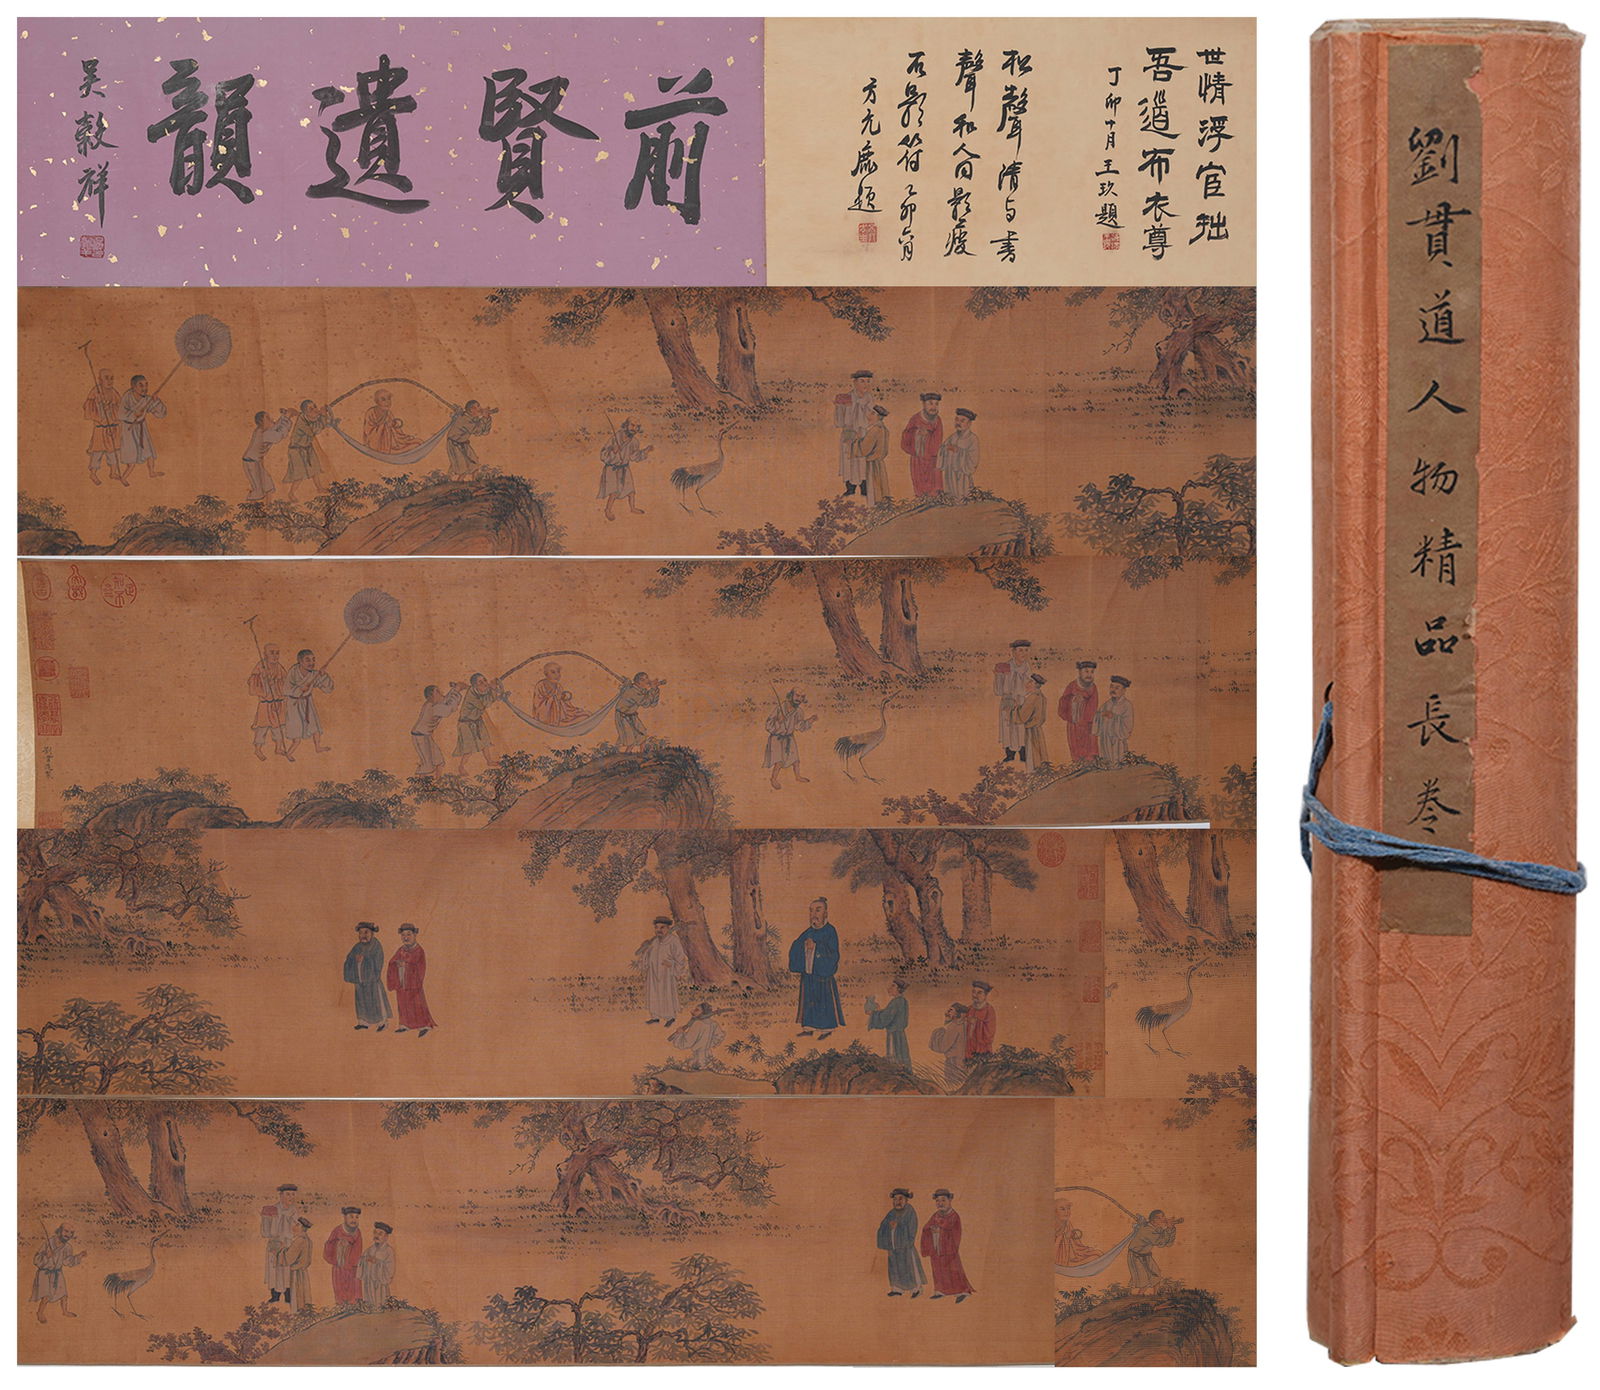 前賢遺韻
吴穀祥
世情浮宦拙
吾道布衣尊
丁卯十月王玖題
松聲清与書
聲和人間影瘦
石影符乙卯
方元鹿題
劉貫道人物精品長卷